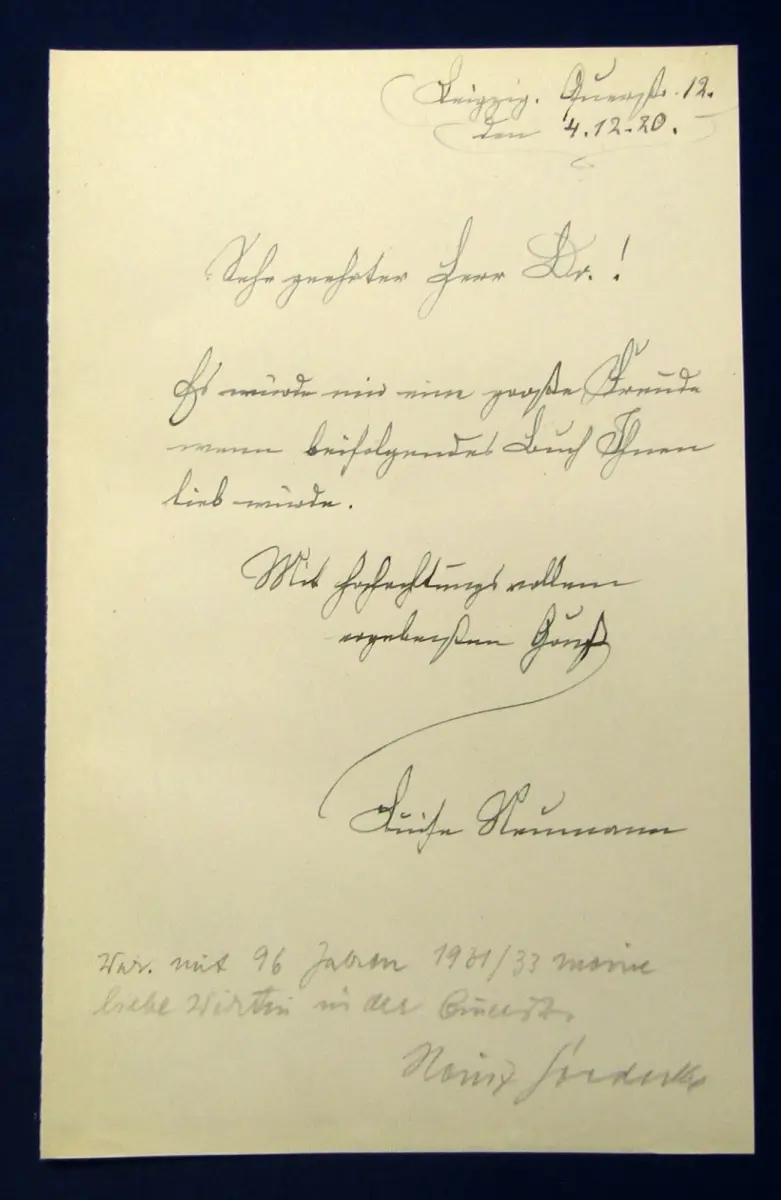 Leipzig. Querstr. 12.
den 4.12.20.
Sehr geehrter Herr Dr.!
Es würde mir eine große Freude
wenn beifolgendes Buch Ihnen
lieb würde.
Mit hochachtungsvollem
ergebensten Gruß
Luise Neumann
War. mit 96 Jahren 1931/33 meine
liebe Wirtin in der Querstr.